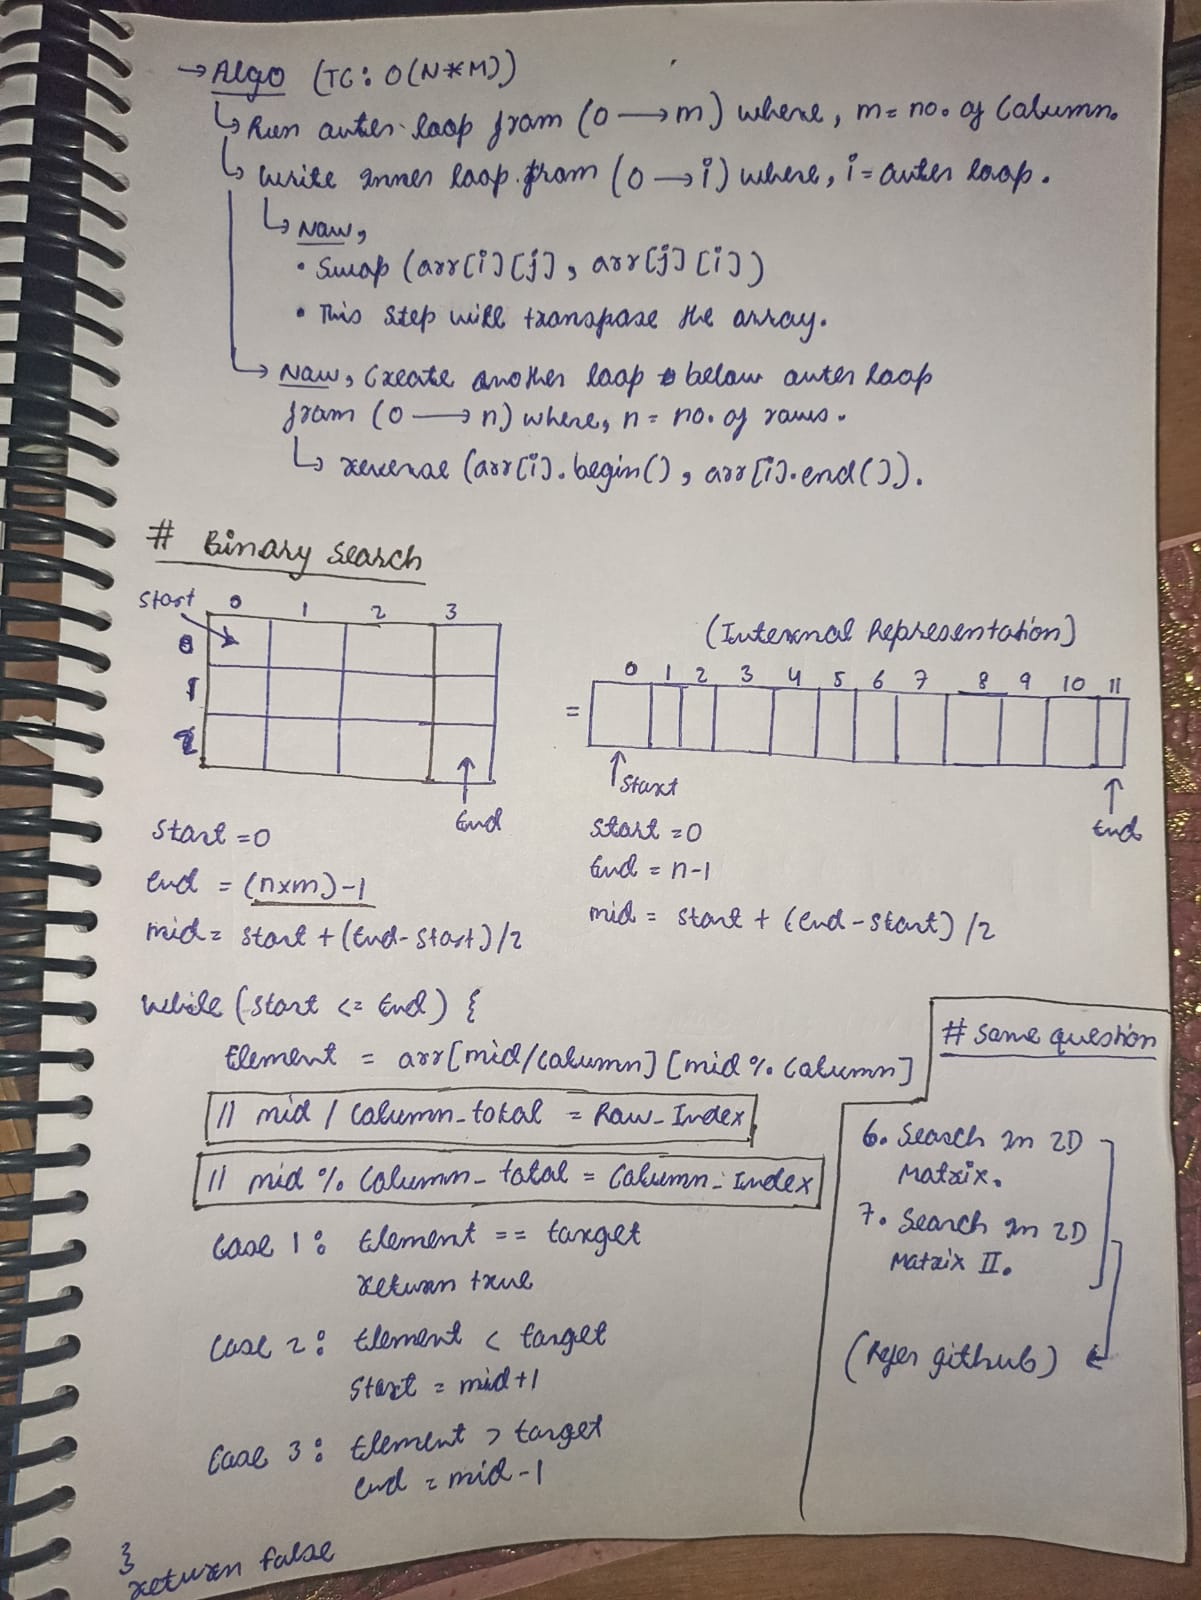 → Algo (TC: O(N*M))
↳ Run outer loop from (0 → m) where, m = no. of Column.
↳ Write inner loop from (0 → i) where, i = outer loop.
↳ Now,
• Swap (arr[i][j], arr[j][i])
• This step will transpose the array.
↳ Now, Create another loop below outer loop
from (0 → n) where, n = no. of rows.
↳ reverse (arr[i].begin(), arr[i].end()).
# Binary Search
Start 0 1 2 3
0
1
2
End
(Internal Representation)
0 1 2 3 4 5 6 7 8 9 10 11
=
Start
End
Start = 0
End = (n×m)-1
mid = start + (End-Start)/2
Start = 0
End = n-1
mid = start + (end-start)/2
While (start <= End) {
Element = arr[mid/column][mid % Column]
// mid / Column_total = Row_Index
// mid % Column_total = Column_Index
Case 1: Element == target
return true
Case 2: Element < target
Start = mid+1
Case 3: Element > target
end = mid-1
}
return false
# Same question
6. Search in 2D
Matrix.
7. Search in 2D
Matrix II.
(Refer github) ←